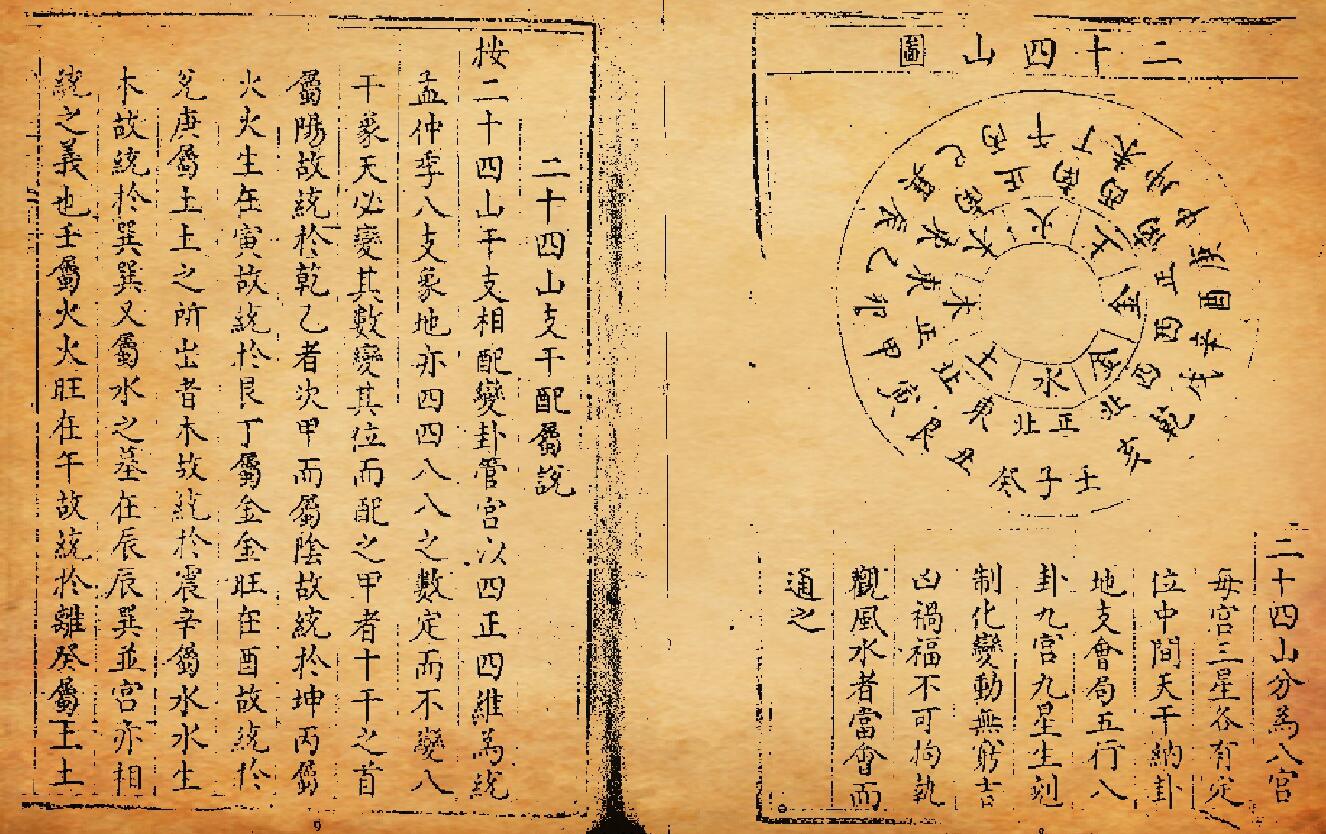 二十四山圖
壬子癸
丑艮寅
甲卯乙
辰巽巳
丙午丁
未坤申
庚酉辛
戌乾亥
正北
東北
正東
東南
正南
西南
正西
西北
水
土
木
木
火
土
金
金
二十四山分為八宮
每宮三星各有定
位中間天干納卦
地支會局五行八
卦九宮九星生剋
制化變動無窮吉
凶禍福不可拘執
觀風水者當會而
通之
二十四山支干配屬說
按二十四山干支相配變卦管宮以四正四維為統
孟仲季八支象地亦四四八八之數定而不變八
干象天必變其數變其位而配之甲者十干之首
屬陽故統於乾乙者次甲而屬陰故統於坤丙屬
火火生在寅故統於艮丁屬金金旺在酉故統於
兌庚屬土土之所出者木故統於震辛屬水水生
木故統於巽巽又屬水之墓在辰辰巽並宮亦相
統之義也壬屬火火旺在午故統於離癸屬土土